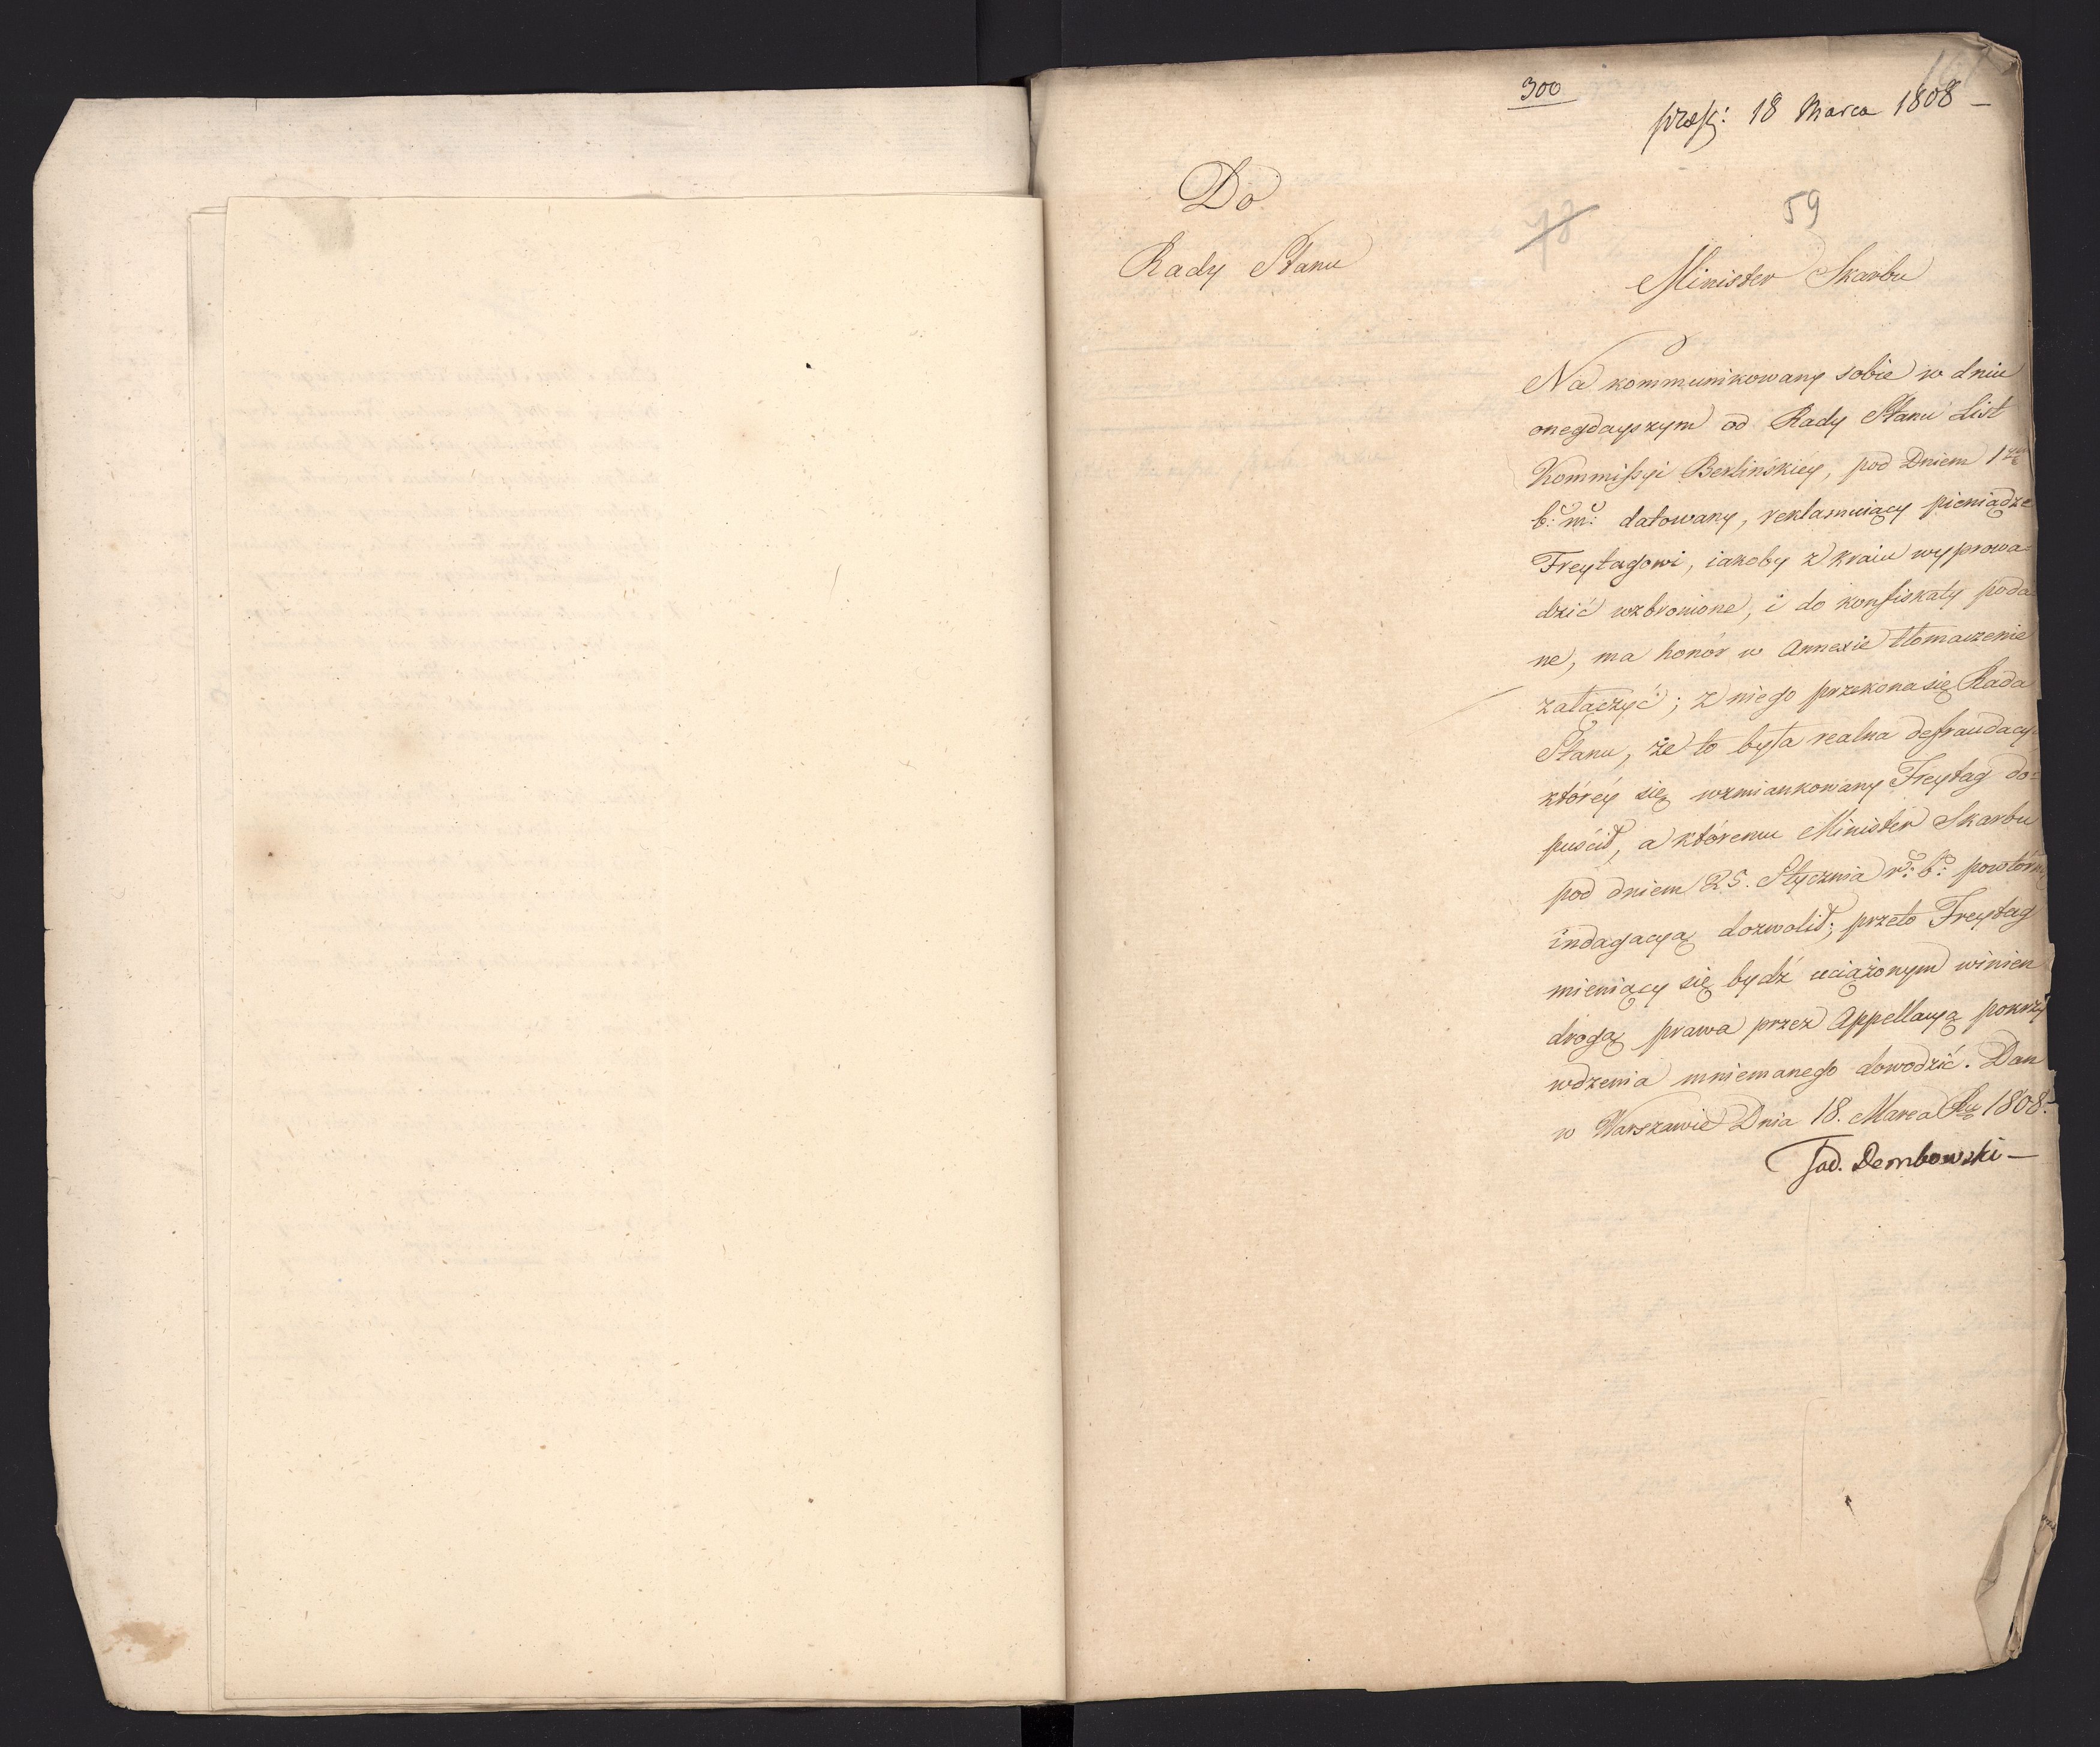 300
præs: 18 Marca 1808 –
Do
78
59
Rady Stanu
Minister Skarbu
Na kommunikowany sobie w dniu
onegdayszym od Rady Stanu List
Kommissyi Berlińskiéy, pod Dniem 1
b: m: datowany, reklamuiący pieniądze
Freytagowi, iakoby z kraiu wyprowa=
dzić wzbronione, i do konfiskaty poda=
ne, ma honór w Annexie tłomaczenie
załączyć; z niego przekona się Rada
Stanu, że to była realna defraudacy
któréy się wzmiankowany Freytag do=
puścił, a któremu Minister Skarbu
pod dniem 25. Stycznia r: b: powtórną
indagacyą dozwolił; przeto Freytag
mieniący się bydź uciążonym winien
drogą prawa przez Appellacyą pokrzy
wdzenia mniemanego dowodzić. Dan
w Warszawie Dnia 18. Marca 1808.
Tad. Dembowski –